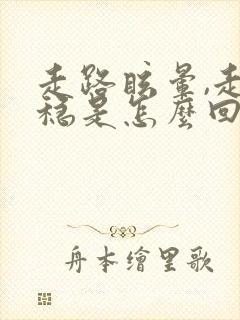 走路眩暈,走
稳是怎麼回
舟本繪里歌